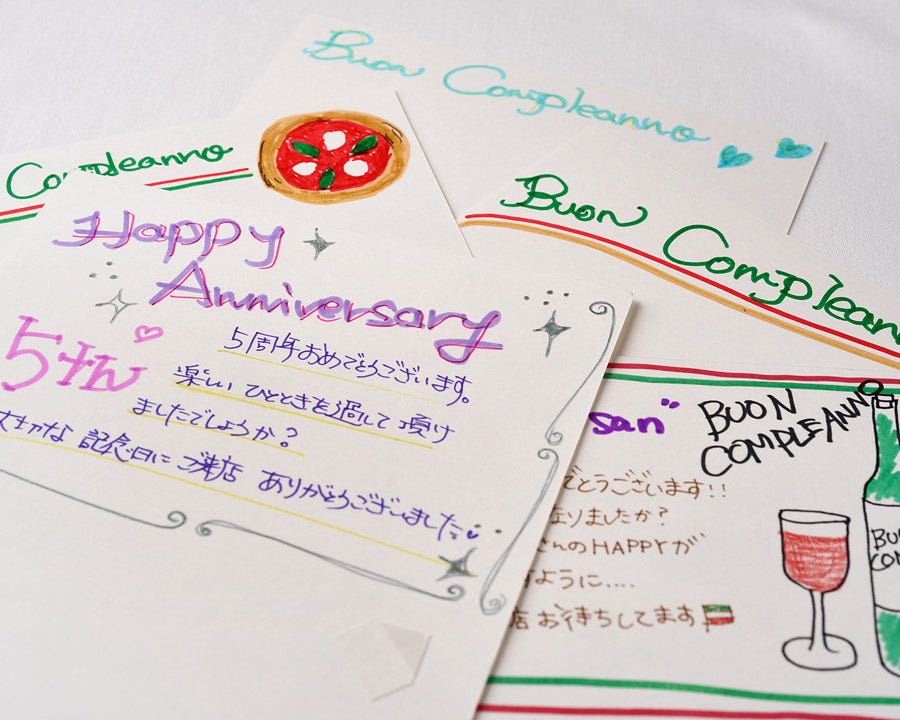 Buon Compleanno
Compleanno
Buon Complean
Happy
Anniversary
5th
5周年おめでとうございます。
楽しい ひとときを過して頂け
ましたでしょうか?
大切な 記念日に ご来店 ありがとうございました
san"
BUON
COMPLEANNO
でとうございます!!
なりましたか?
さんのHAPPYが
すように....
店 お待ちしてます